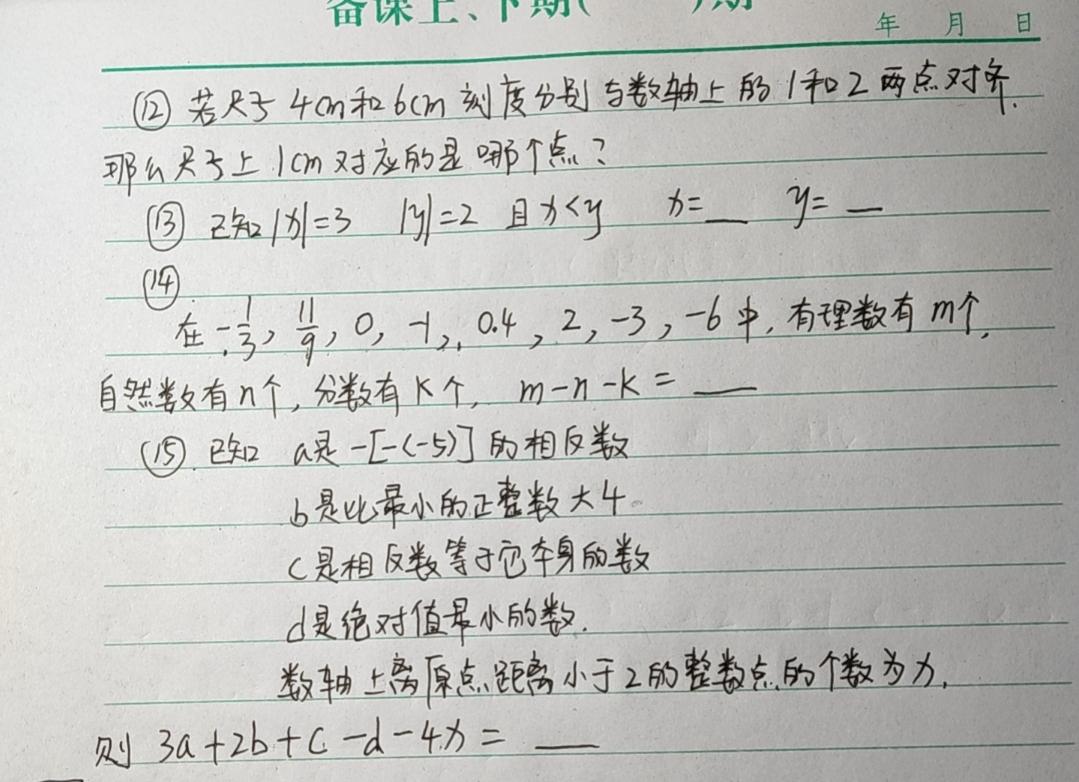 备课上、下期( )期
年 月 日
⑫ 若尺子 4cm和6cm 刻度分别与数轴上的1和2两点对齐.
那么尺子上1cm对应的是哪个点?
⑬ 已知|x|=3 |y|=2 且x<y x=__ y=__
⑭
在 -1/3, 11/9, 0, -1, 0.4, 2, -3, -6中, 有理数有m个,
自然数有n个, 分数有K个, m-n-k=__
⑮. 已知 a是-[-(-5)]的相反数
b是比最小的正整数大4
c是相反数等于它本身的数
d是绝对值最小的数.
数轴上离原点距离小于2的整数点的个数为x,
则 3a+2b+c-d-4x=__